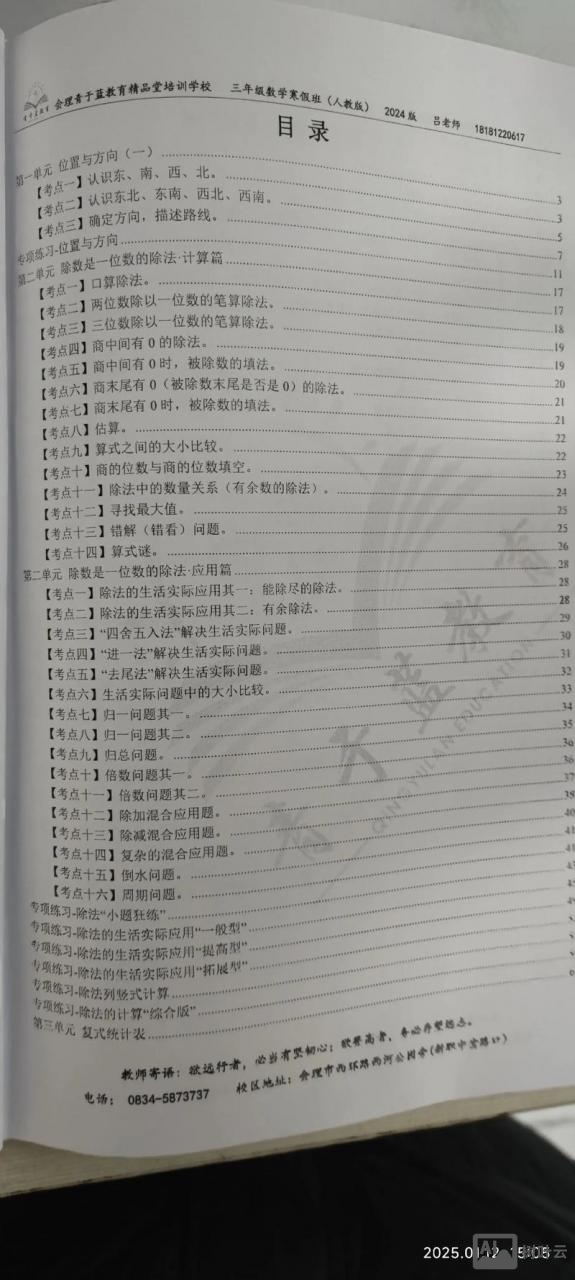 会理青于蓝教育精品堂培训学校 三年级数学寒假班（人教版） 2024版 吕老师 18181220617
目录
第一单元 位置与方向（一） 3
【考点一】认识东、南、西、北。 3
【考点二】认识东北、东南、西北、西南。 5
【考点三】确定方向，描述路线。 7
专项练习-位置与方向 11
第二单元 除数是一位数的除法·计算篇 17
【考点一】口算除法。 17
【考点二】两位数除以一位数的笔算除法。 18
【考点三】三位数除以一位数的笔算除法。 19
【考点四】商中间有0的除法。 19
【考点五】商中间有0时，被除数的填法。 20
【考点六】商末尾有0（被除数末尾是否是0）的除法。 21
【考点七】商末尾有0时，被除数的填法。 21
【考点八】估算。 22
【考点九】算式之间的大小比较。 22
【考点十】商的位数与商的位数填空。 23
【考点十一】除法中的数量关系（有余数的除法）。 24
【考点十二】寻找最大值。 25
【考点十三】错解（错看）问题。 25
【考点十四】算式谜。 26
第二单元 除数是一位数的除法·应用篇 28
【考点一】除法的生活实际应用其一：能除尽的除法。 28
【考点二】除法的生活实际应用其二：有余除法。 28
【考点三】“四舍五入法”解决生活实际问题。 29
【考点四】“进一法”解决生活实际问题。 30
【考点五】“去尾法”解决生活实际问题。 31
【考点六】生活实际问题中的大小比较。 32
【考点七】归一问题其一。 33
【考点八】归一问题其二。 34
【考点九】归总问题。 35
【考点十】倍数问题其一。 36
【考点十一】倍数问题其二。 36
【考点十二】除加混合应用题。 37
【考点十三】除减混合应用题。
【考点十四】复杂的混合应用题。 40
【考点十五】倒水问题。 41
【考点十六】周期问题。
专项练习-除法“小题狂练”
专项练习-除法的生活实际应用“一般型”
专项练习-除法的生活实际应用“提高型”
专项练习-除法的生活实际应用“拓展型”
专项练习-除法列竖式计算
专项练习-除法的计算“综合版”
第三单元 复式统计表
教师寄语：欲远行者，必当有坚韧心；欲登高者，务必存望远志。
电话： 0834-5873737 校区地址：会理市西环路西河公园旁(新职中岔路口)
青于蓝教育
QINGYULAN EDUCATION
2025.01.12 15:05